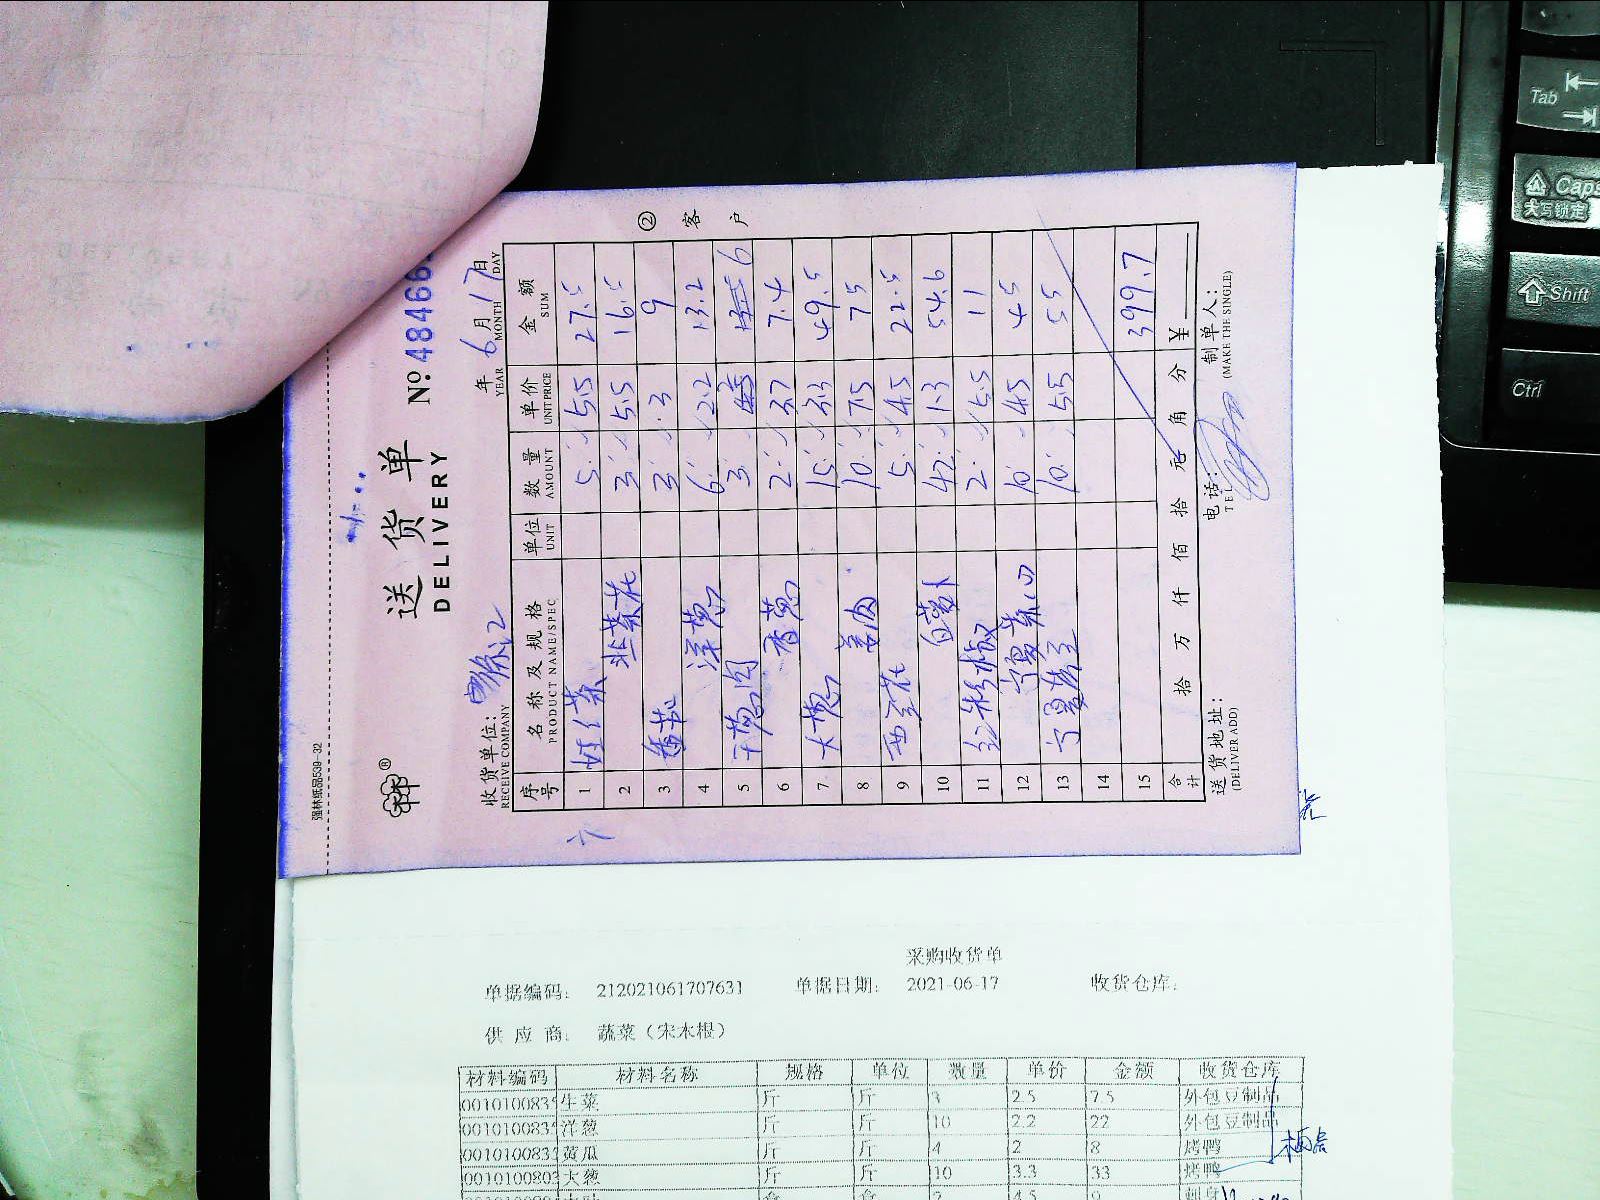 强林纸品539-32
送货单
DELIVERY
№ 48466
6月17日
年 YEAR 月 MONTH 日 DAY
② 客户
收货单位：
RECEIVE COMPANY
序号 名称及规格 PRODUCT NAME/SPEC 单位 UNIT 数量 AMOUNT 单价 UNIT PRICE 金额 SUM
1 5 5.5 27.5
2 韭菜花 3 5.5 16.5
3 3 3 9
4 洋葱 6 2.2 13.2
5 干葱肉 3 6
6 香葱 2 3.7 7.4
7 大葱 15 3.3 49.5
8 姜肉 10 7.5 75
9 西兰花 5 4.5 22.5
10 白萝卜 42 1.3 54.6
11 红彬椒 2 5.5 11
12 宁夏菜心 10 4.5 45
13 10 5.5 55
14
15 399.7
合计 拾 万 仟 佰 拾 元 角 分 ¥
送货地址：
(DELIVER ADD)
电话：
TEL
制单人：
(MAKE THE SINGLE)
采购收货单
单据编码： 212021061707631 单据日期： 2021-06-17 收货仓库：
供应商： 蔬菜（宋木根）
材料编码 材料名称 规格 单位 数量 单价 金额 收货仓库
001010083 生菜 斤 斤 3 2.5 7.5 外包豆制品
001010083 洋葱 斤 斤 10 2.2 22 外包豆制品
001010083 黄瓜 斤 斤 4 2 8 烤鸭
001010080 大葱 斤 斤 10 3.3 33 烤鸭
Tab
Caps
大写锁定
Shift
Ctrl